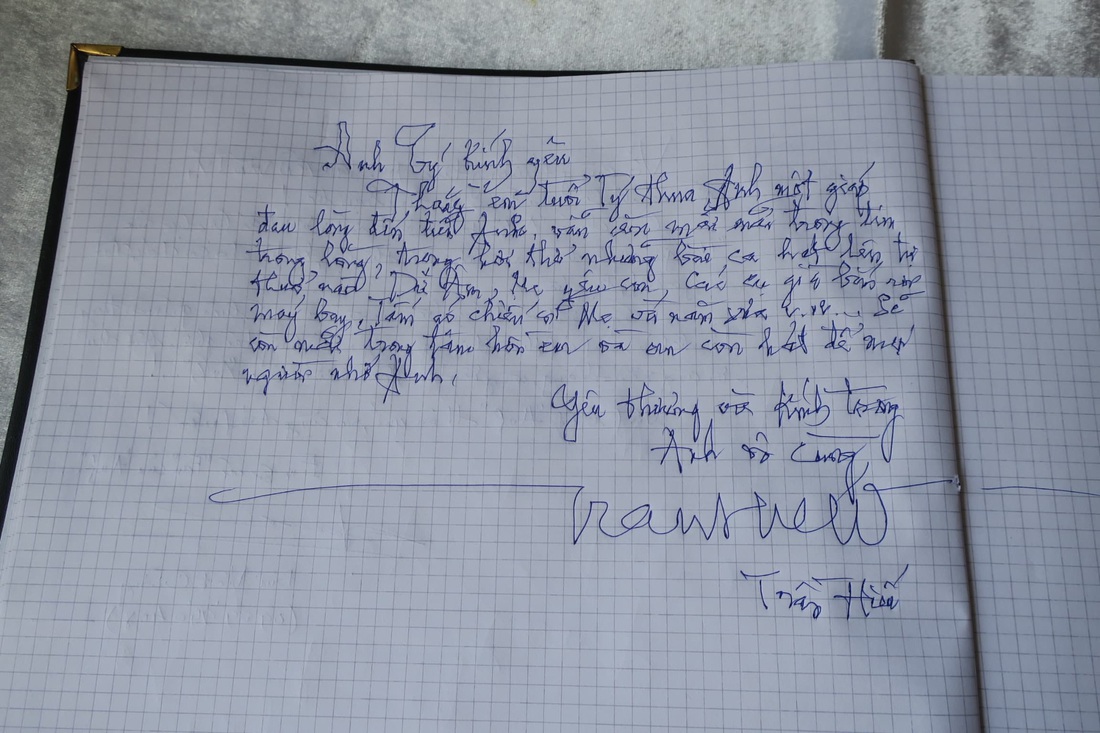 Anh Tý kính yêu
Thằng em tuổi Tý thua Anh một giáp
đau lòng đến tiễn Anh, vẫn còn mãi mãi trong tim
trong lòng, trong hơi thở những bài ca hát lên từ
thuở nào Dư Âm, Mẹ yêu con, Các cụ già bắn rơi
máy bay, Tấm áo chiến sĩ Mẹ vá năm xưa v.v... Sẽ
còn mãi trong tâm hồn em và em còn hát để mọi
người nhớ Anh.
Yêu thương và kính trọng
Anh vô cùng
Trần Hiếu